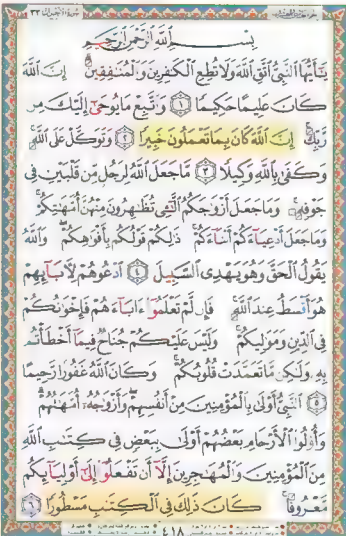 سُورَةُ الأَحْزَابِ ٣٣
بِسْمِ ٱللَّهِ ٱلرَّحْمَٰنِ ٱلرَّحِيمِ
يَٰٓأَيُّهَا ٱلنَّبِىُّ ٱتَّقِ ٱللَّهَ وَلَا تُطِعِ ٱلْكَٰفِرِينَ وَٱلْمُنَٰفِقِينَ إِنَّ ٱللَّهَ
كَانَ عَلِيمًا حَكِيمًا ١ وَٱتَّبِعْ مَا يُوحَىٰٓ إِلَيْكَ مِن
رَّبِّكَ إِنَّ ٱللَّهَ كَانَ بِمَا تَعْمَلُونَ خَبِيرًا ٢ وَتَوَكَّلْ عَلَى ٱللَّهِ
وَكَفَىٰ بِٱللَّهِ وَكِيلًا ٣ مَّا جَعَلَ ٱللَّهُ لِرَجُلٍ مِّن قَلْبَيْنِ فِى
جَوْفِهِۦ وَمَا جَعَلَ أَزْوَٰجَكُمُ ٱلَّٰٓـِٔى تُظَٰهِرُونَ مِنْهُنَّ أُمَّهَٰتِكُمْ
وَمَا جَعَلَ أَدْعِيَآءَكُمْ أَبْنَآءَكُمْ ذَٰلِكُمْ قَوْلُكُم بِأَفْوَٰهِكُمْ وَٱللَّهُ
يَقُولُ ٱلْحَقَّ وَهُوَ يَهْدِى ٱلسَّبِيلَ ٤ ٱدْعُوهُمْ لِءَابَآئِهِمْ
هُوَ أَقْسَطُ عِندَ ٱللَّهِ فَإِن لَّمْ تَعْلَمُوٓا۟ ءَابَآءَهُمْ فَإِخْوَٰنُكُمْ
فِى ٱلدِّينِ وَمَوَٰلِيكُمْ وَلَيْسَ عَلَيْكُمْ جُنَاحٌ فِيمَآ أَخْطَأْتُم
بِهِۦ وَلَٰكِن مَّا تَعَمَّدَتْ قُلُوبُكُمْ وَكَانَ ٱللَّهُ غَفُورًا رَّحِيمًا
٥ ٱلنَّبِىُّ أَوْلَىٰ بِٱلْمُؤْمِنِينَ مِنْ أَنفُسِهِمْ وَأَزْوَٰجُهُۥٓ أُمَّهَٰتُهُمْ
وَأُو۟لُوا۟ ٱلْأَرْحَامِ بَعْضُهُمْ أَوْلَىٰ بِبَعْضٍ فِى كِتَٰبِ ٱللَّهِ
مِنَ ٱلْمُؤْمِنِينَ وَٱلْمُهَٰجِرِينَ إِلَّآ أَن تَفْعَلُوٓا۟ إِلَىٰٓ أَوْلِيَآئِكُم
مَّعْرُوفًا كَانَ ذَٰلِكَ فِى ٱلْكِتَٰبِ مَسْطُورًا ٦
٤١٨